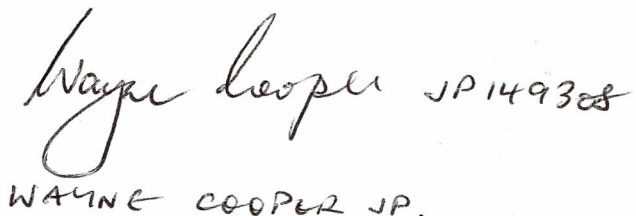 Wayne Cooper JP149308
WAYNE COOPER JP.